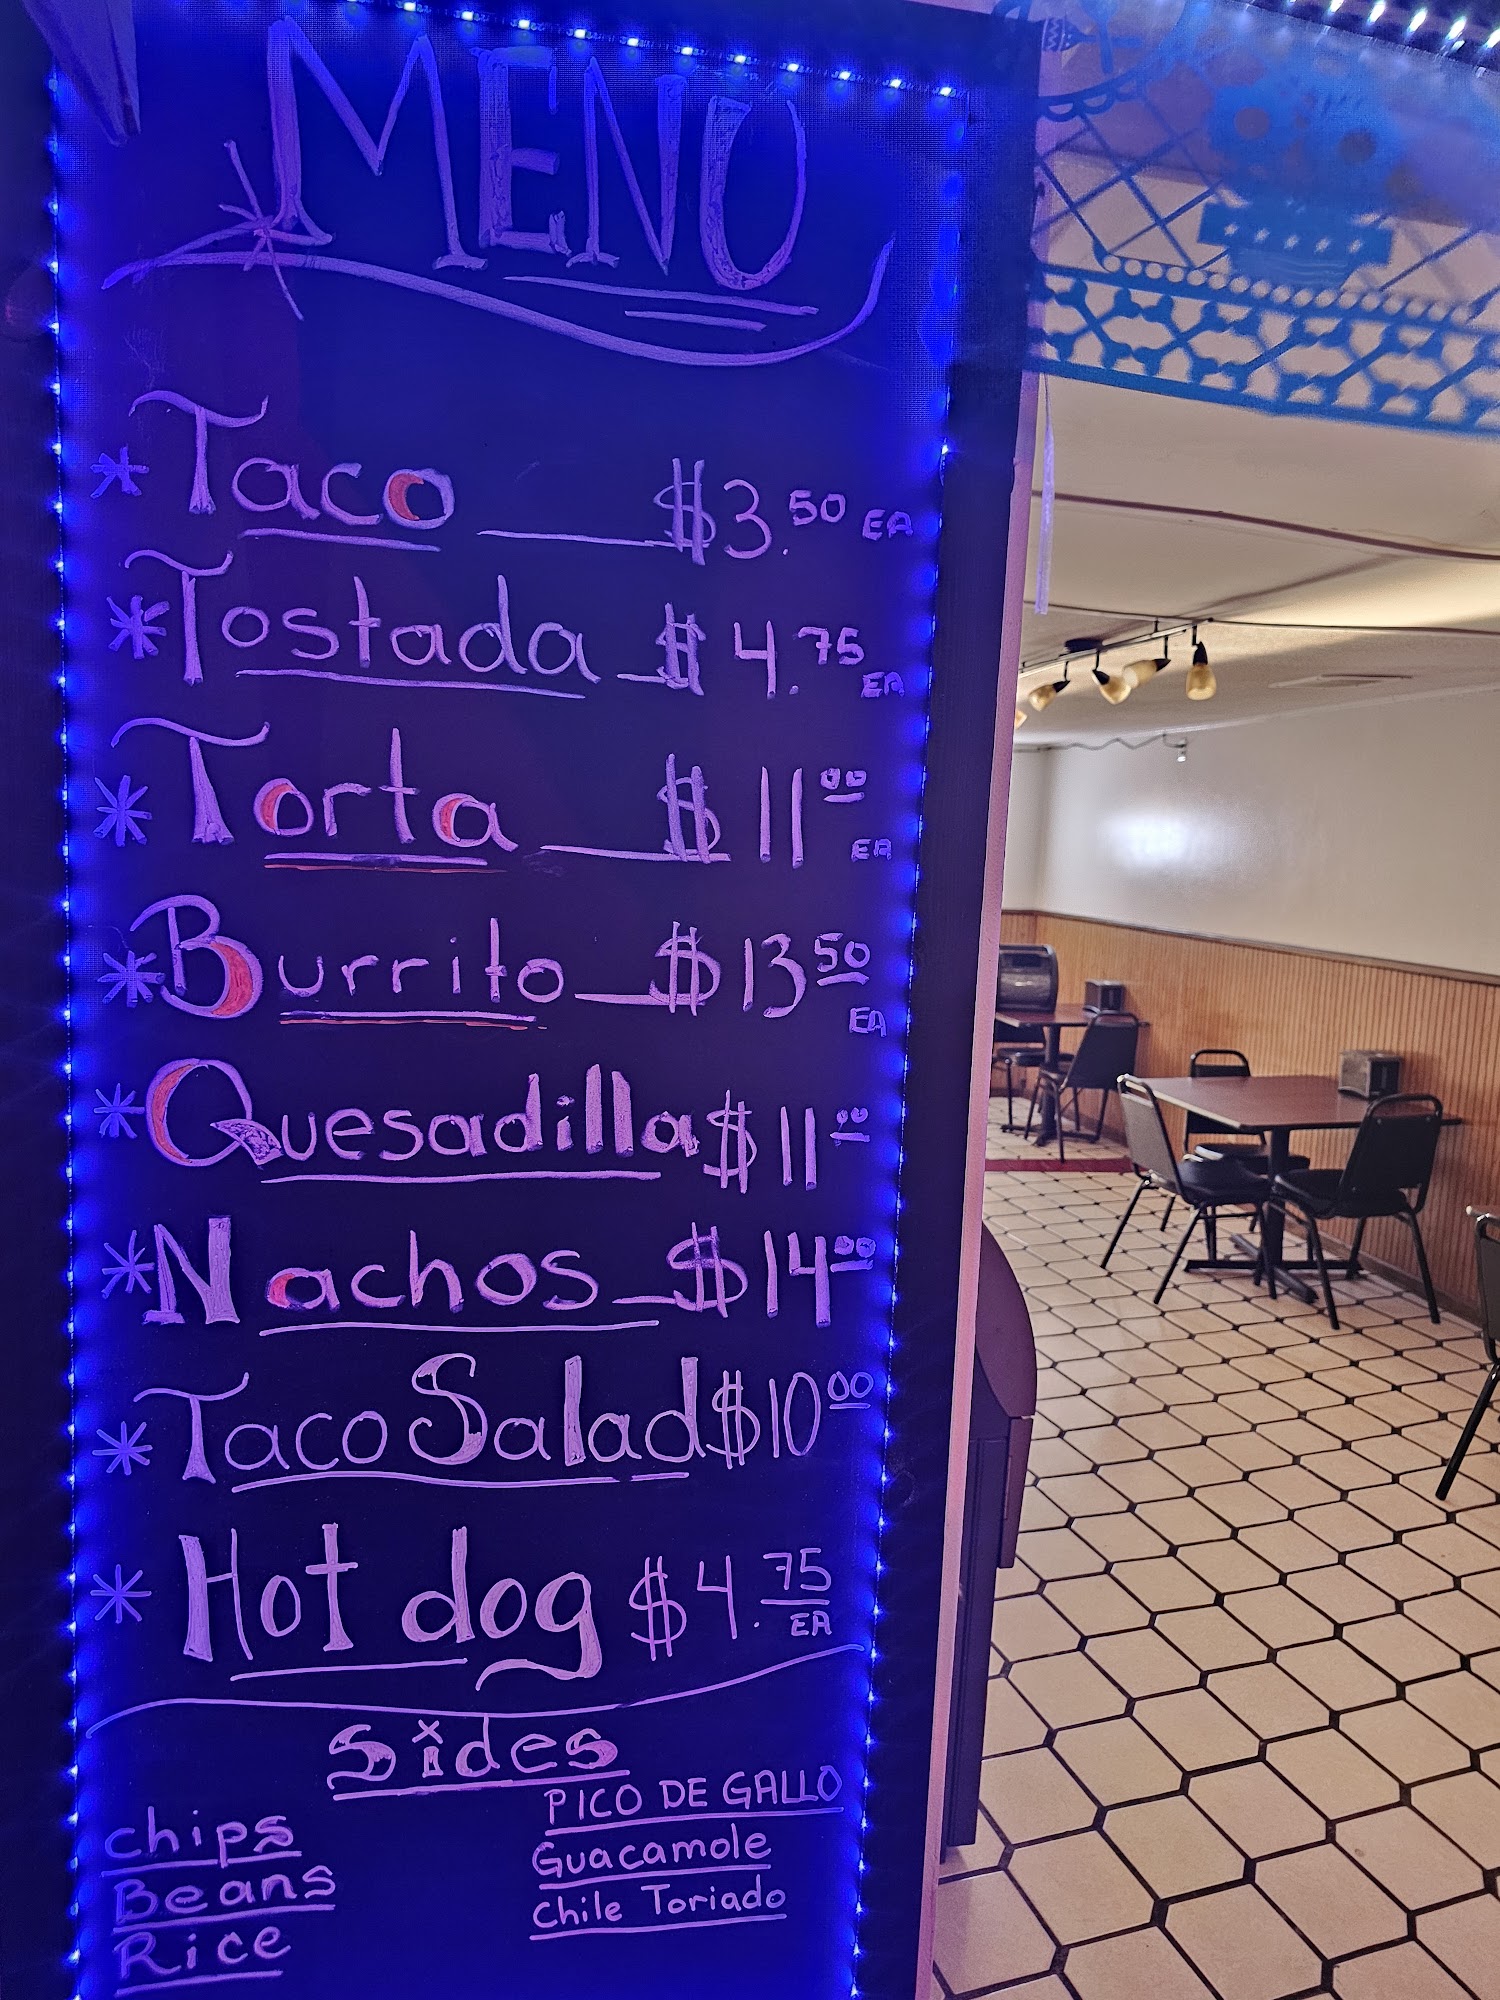 MENU
* Taco $3.50 EA
* Tostada $4.75 EA
* Torta $11.00 EA
* Burrito $13.50 EA
* Quesadilla $11.00
* Nachos $14.00
* Taco Salad $10.00
* Hot dog $4.75 EA
Sides
Chips
Beans
Rice
PICO DE GALLO
Guacamole
Chile Toriado